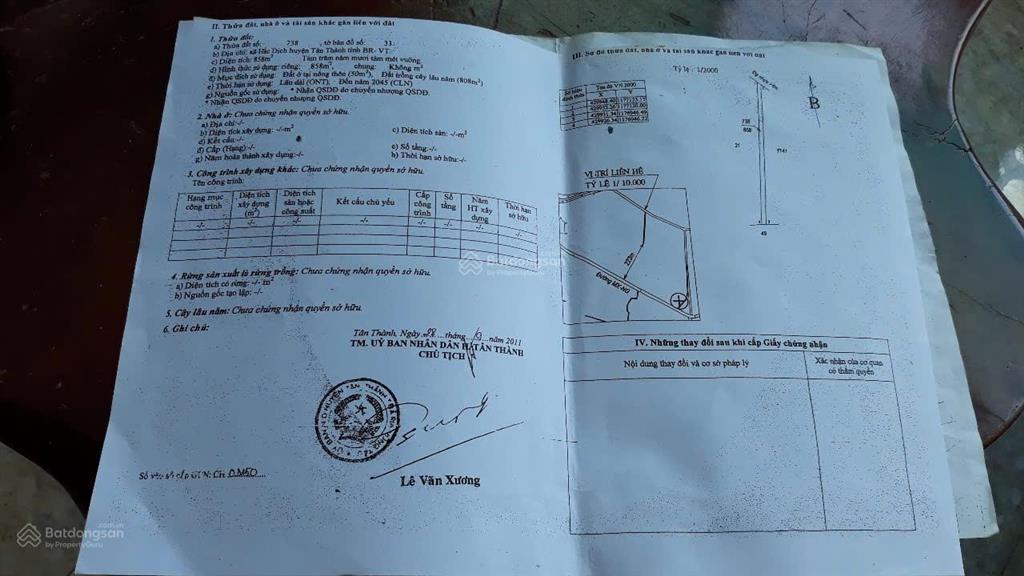 II. Thửa đất, nhà ở và tài sản khác gắn liền với đất
1. Thửa đất:
a) Thửa đất số: 738 , tờ bản đồ số: 33.
b) Địa chỉ: xã Hắc Dịch huyện Tân Thành tỉnh BR- VT.
c) Diện tích: 858m² Tám trăm năm mươi tám mét vuông.
d) Hình thức sử dụng: riêng: 858m², chung: Không m²
đ) Mục đích sử dụng: Đất ở tại nông thôn (50m²), Đất trồng cây lâu năm (808m²)
e) Thời hạn sử dụng: Lâu dài (ONT), Đến năm 2045 (CLN)
g) Nguồn gốc sử dụng: * Nhận QSDĐ do chuyển nhượng QSDĐ.
* Nhận QSDĐ do chuyển nhượng QSDĐ.
2. Nhà ở: Chưa chứng nhận quyền sở hữu.
a) Địa chỉ:-/-
b) Diện tích xây dựng: -/-m² c) Diện tích sàn: -/-m²
d) Kết cấu:-/- e) Số tầng:-/-
đ) Cấp (Hạng):-/- h) Thời hạn sở hữu:-/-
g) Năm hoàn thành xây dựng:-/-
3. Công trình xây dựng khác: Chưa chứng nhận quyền sở hữu.
Tên công trình:
Hạng mục công trình Diện tích xây dựng (m²) Diện tích sàn hoặc công suất Kết cấu chủ yếu Cấp công trình Số tầng Năm HT xây dựng Thời hạn sở hữu
-/- -/- -/- -/- -/- -/- -/- -/-
4. Rừng sản xuất là rừng trồng: Chưa chứng nhận quyền sở hữu.
a) Diện tích có rừng: -/- m²
b) Nguồn gốc tạo lập: -/-
5. Cây lâu năm: Chưa chứng nhận quyền sở hữu.
6. Ghi chú:
Tân Thành, Ngày tháng năm 2011
TM. UỶ BAN NHÂN DÂN H.TÂN THÀNH
CHỦ TỊCH
Lê Văn Xương
Số vào sổ cấp GCN: CH
III. Sơ đồ thửa đất, nhà ở và tài sản khác gắn liền với đất
Tỷ lệ : 1/2000
Số hiệu đỉnh thửa Tọa độ VN 2000
X Y
B
738
858
21
1741
49
VỊ TRÍ LIÊN HỆ
TỶ LỆ 1/ 10.000
IV. Những thay đổi sau khi cấp Giấy chứng nhận
Nội dung thay đổi và cơ sở pháp lý
Xác nhận của cơ quan có thẩm quyền
Batdongsan
by PropertyGuru
Batdongsan.com.vn
by PropertyGuru